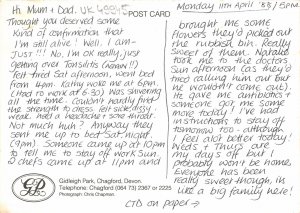 Hi Mum + Dad. UK 49945
POST CARD
Monday 11th April '88/5PM
Thought you deserved some
kind of confirmation that
I'm still alive! Well, I am-
JUST!! No, I'm ok really, just
getting over Tonsilitis (hmm!!)
Felt tired Sat afternoon, went bed
from 4pm. Kathy woke me at 6pm.
(Had to work at 6.30) Was shivering
all the time. Couldn't hardly find
the strength to dress. Felt sickly,
weak, had a headache + sore throat.
Not much huh? Anyway they
sent me up to bed Sat night
(9pm). Someone came up at 10pm
to tell me to stay off work Sun.
2 chefs came up at 11pm and
Gidleigh Park, Chagford, Devon.
Telephone: Chagford (064 73) 2367 or 2225
Photograph: Chris Chapman.
brought me some
flowers they'd picked out
the rubbish bin. Really
sweet of them. Natalie
took me to the doctors
Sun afternoon (as they'd
tried calling him out but
he wouldn't come out).
He gave me antibiotics +
someone got me some
more today! I've had
instructions to stay off
tomorrow too - although
I feel alot better today!
Weds + Thurs are
my days off but
probably won't be home.
Everyone has been
really sweet though, its
like a big family here!
CTD on paper →